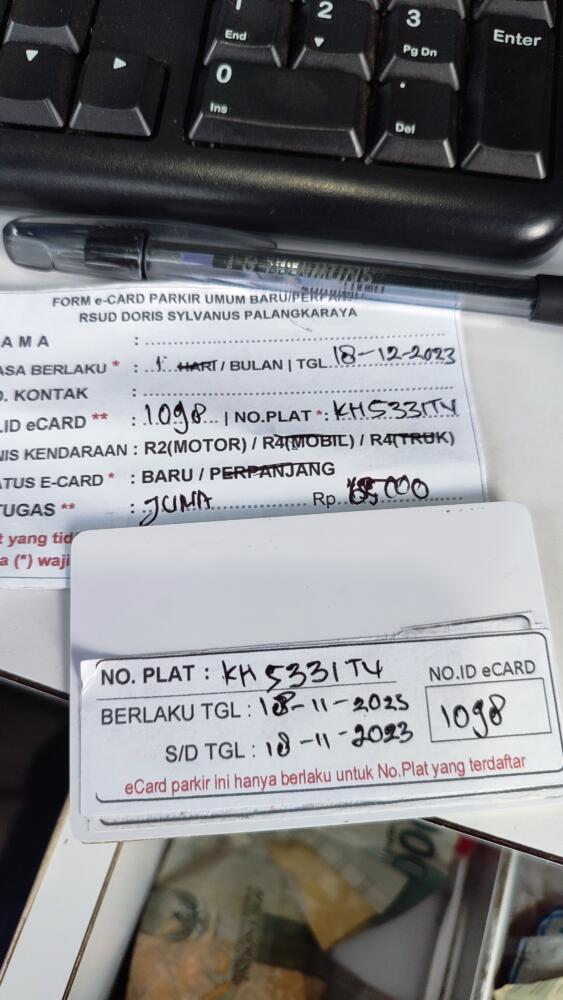 1
End
2
3
Pg Dn
Enter
0
Ins
.
Del
FORM e-CARD PARKIR UMUM BARU/
RSUD DORIS SYLVANUS PALANGKARAYA
AMA :
ASA BERLAKU * : 1 HARI / BULAN | TGL. 18-12-2023
O. KONTAK :
.ID eCARD ** : 1098 | NO.PLAT *: KH5331TY
NIS KENDARAAN : R2(MOTOR) / R4(MOBIL) / R4(TRUK)
ATUS E-CARD * : BARU / PERPANJANG
TUGAS ** : JUMA Rp. 65000
t yang tid
a (*) waji
NO. PLAT : KH 5331 TY
NO.ID eCARD
BERLAKU TGL : 18-11-2025
1098
S/D TGL : 18-11-2023
eCard parkir ini hanya berlaku untuk No.Plat yang terdaftar